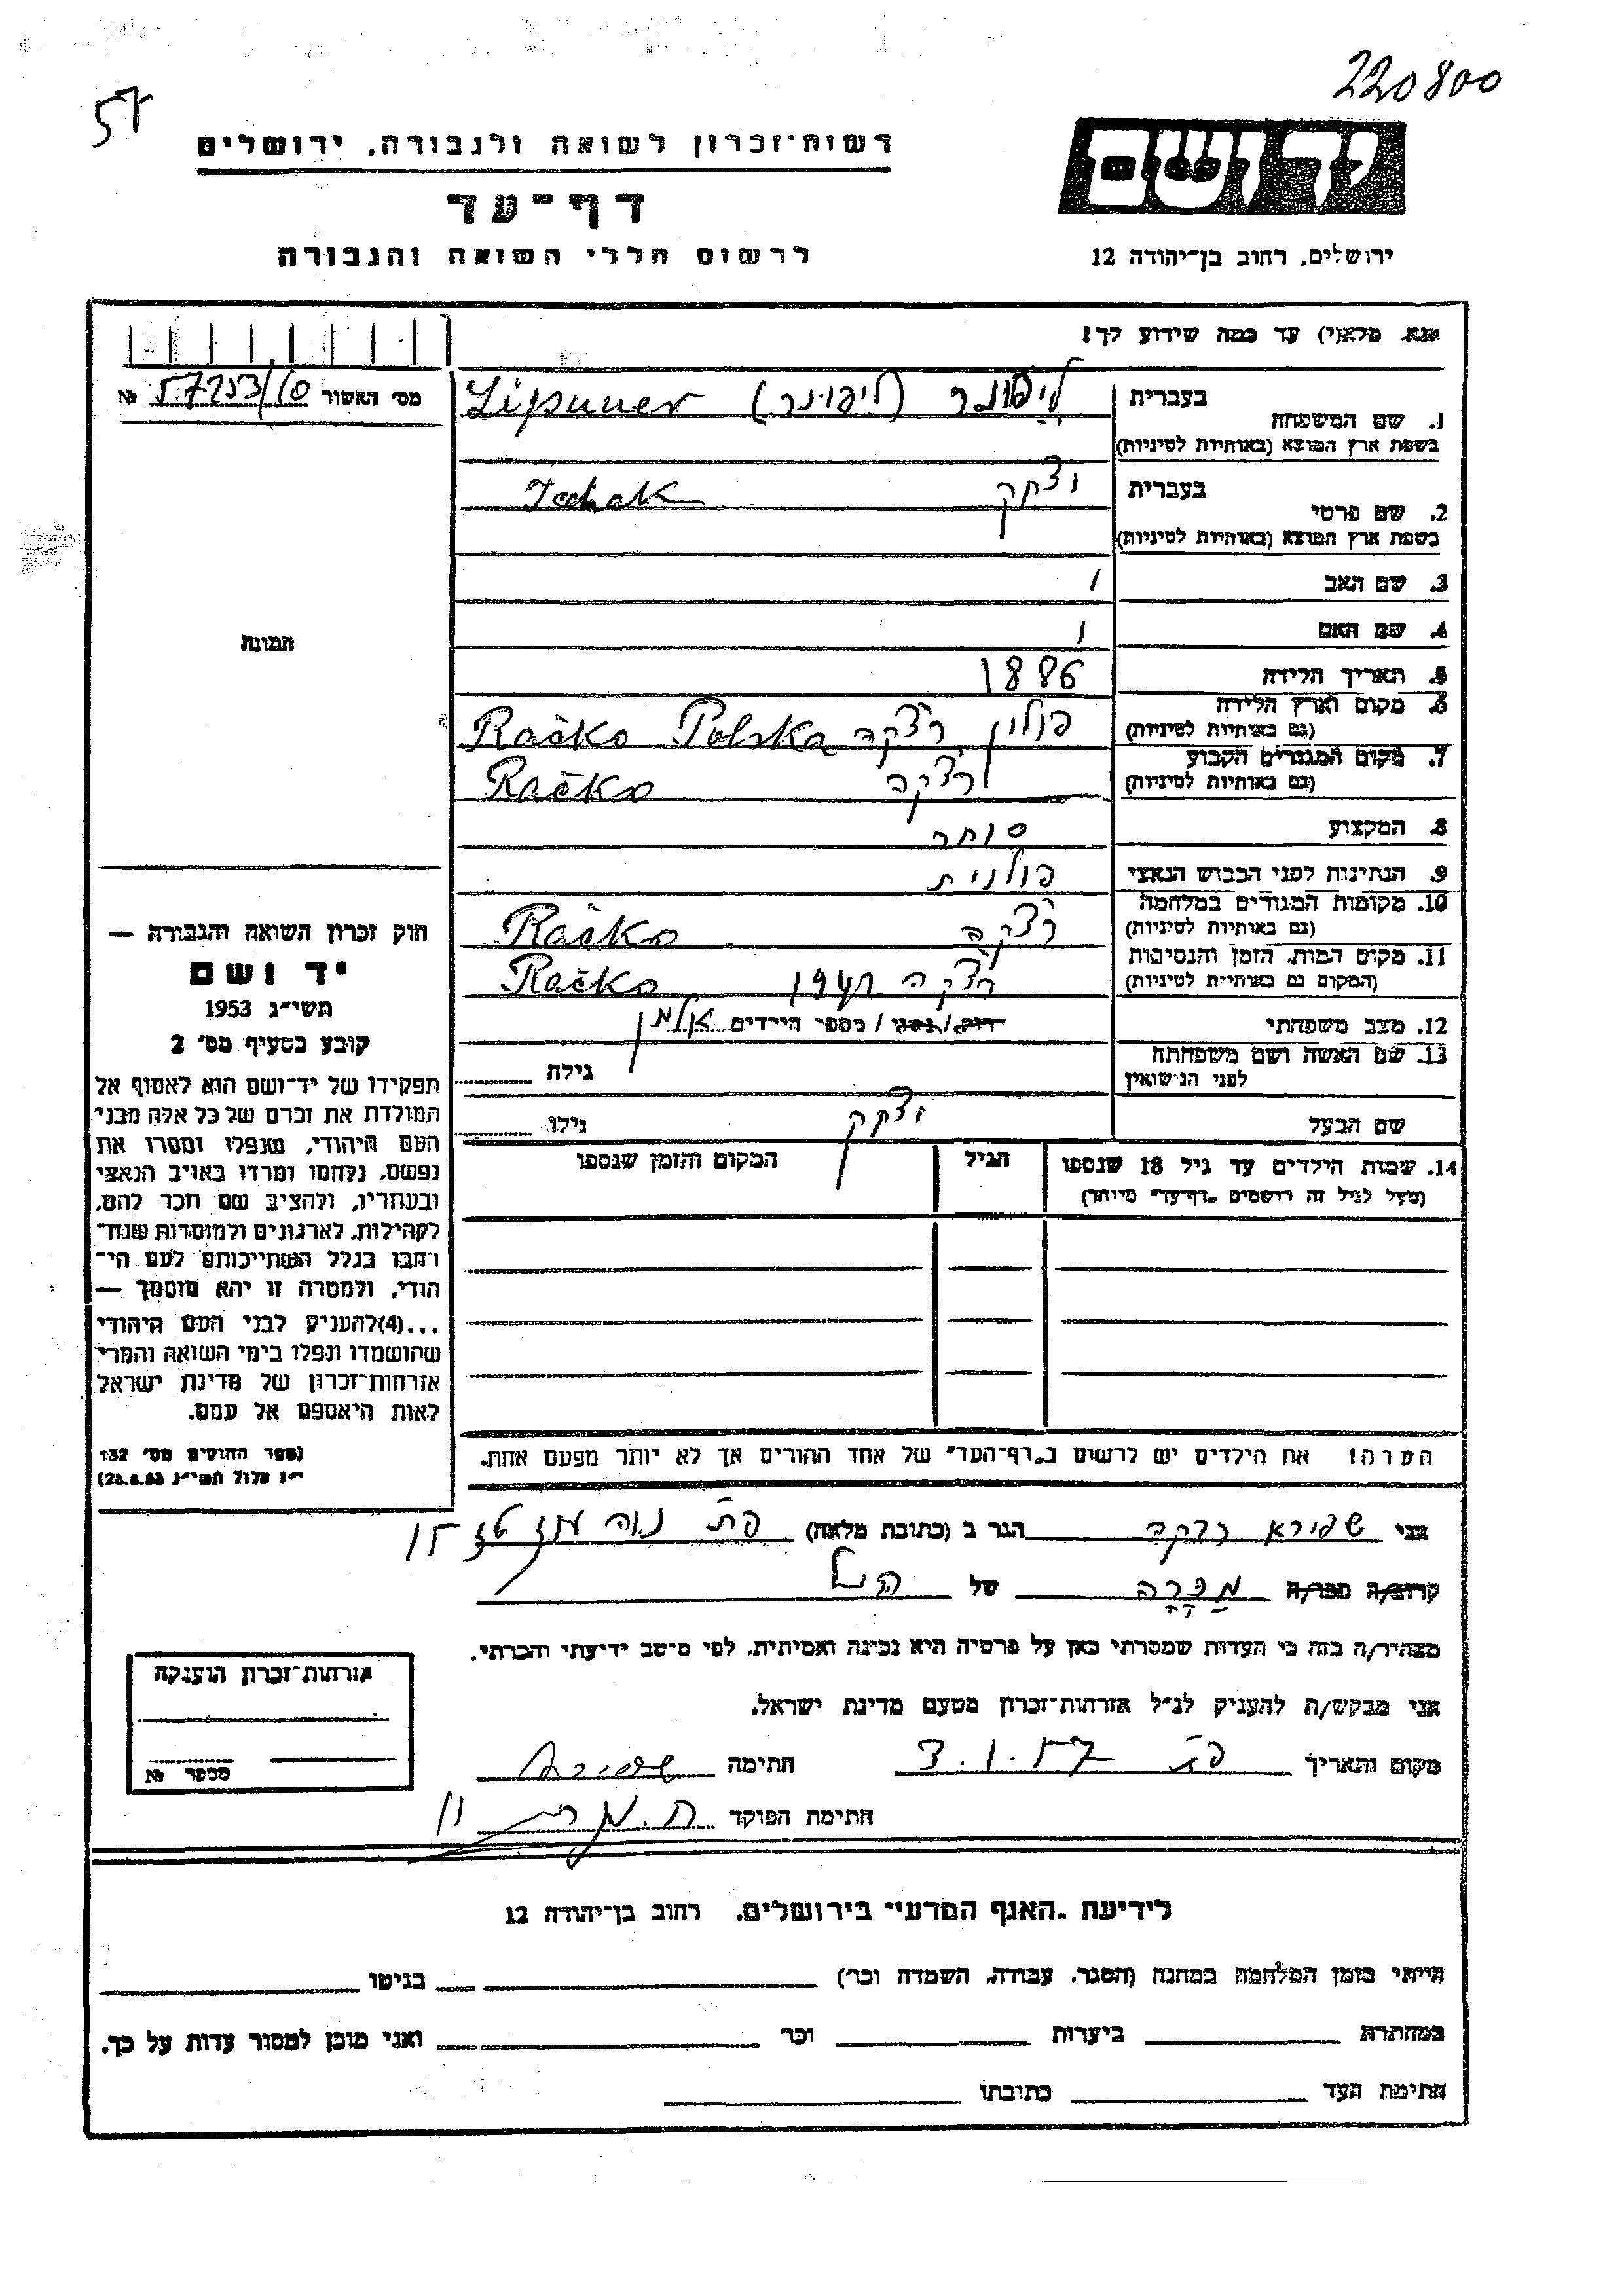 220800
57
רשות־זכרון לשואה ולגבורה, ירושלים
יד ושם
דף־עד
לרשום חללי השואה והגבורה
ירושלים, רחוב בן־יהודה 12
נא מלא(י) עד כמה שידוע לך!
מס׳ האשור 57253/10 №
1. שם המשפחה
בעברית
בשפת ארץ המוצא (באותיות לטיניות)
ליפונר (ליפונר) Lipuner
2. שם פרטי
בעברית
בשפת ארץ המוצא (באותיות לטיניות)
יצחק Icchak
3. שם האב
4. שם האם
5. תאריך הלידה 1886
6. מקום וארץ הלידה
(גם באותיות לטיניות)
פולין רצקה Račko Polska
7. מקום המגורים הקבוע
(גם באותיות לטיניות)
רצקה Račko
8. המקצוע סוחר
9. הנתינות לפני הכבוש הנאצי פולנית
10. מקומות המגורים במלחמה
(גם באותיות לטיניות)
רצקה Račko
11. מקום המות, הזמן והנסיבות
(המקום גם באותיות לטיניות)
רצקה Račko
12. מצב משפחתי רווק/נשוי/מספר הילדים אלמן
13. שם האשה ושם משפחתה
לפני הנישואין
גילה
שם הבעל
יצחק
גילו
14. שמות הילדים עד גיל 18 שנספו
(מעל לגיל זה רושמים „דף־עד״ מיוחד)
הגיל
המקום והזמן שנספו
הערה! את הילדים יש לרשום ב„דף־העד״ של אחד ההורים אך לא יותר מפעם אחת.
תמונת
חוק זכרון השואה והגבורה —
יד ושם
תשי״ג 1953
קובע בסעיף מס׳ 2
תפקידו של יד־ושם הוא לאסוף אל
המולדת את זכרם של כל אלה מבני
העם היהודי, שנפלו ומסרו את
נפשם, נלחמו ומרדו באויב הנאצי
ובעוזריו, ולהציב שם וזכר להם,
לקהילות, לארגונים ולמוסדות שנח־
רבו בגלל השתייכותם לעם הי־
הודי, ולמטרה זו יהא מוסמך —
...(4)להעניק לבני העם היהודי
שהושמדו ונפלו בימי השואה והמרי
אזרחות־זכרון של מדינת ישראל
לאות היאספם אל עמם.
(ספר החוקים מס׳ 132
י״ז אלול תשי״ג 28.8.53)
אני שפירא רבקה הגר ב (כתובת מלאה) פת נוה עוז
קרוב/ה מכר/ה מכרה של
מצהיר/ה בזה כי העדות שמסרתי כאן על פרטיה היא נכונה ואמיתית, לפי מיטב ידיעתי והכרתי.
אני מבקש/ת להעניק לנ״ל אזרחות־זכרון מטעם מדינת ישראל.
מקום ותאריך פת 3.1.57 חתימה שפירא
חתימת הפוקד
אזרחות־זכרון הוענקה
מספר №
לידיעת „האגף המדעי״ בירושלים, רחוב בן־יהודה 12
הייתי בזמן המלחמה במחנה (הסגר, עבודה, השמדה וכו׳) בגיטו
במחתרת ביערות וכו׳ ואני מוכן למסור עדות על כך.
חתימת העד כתובתו